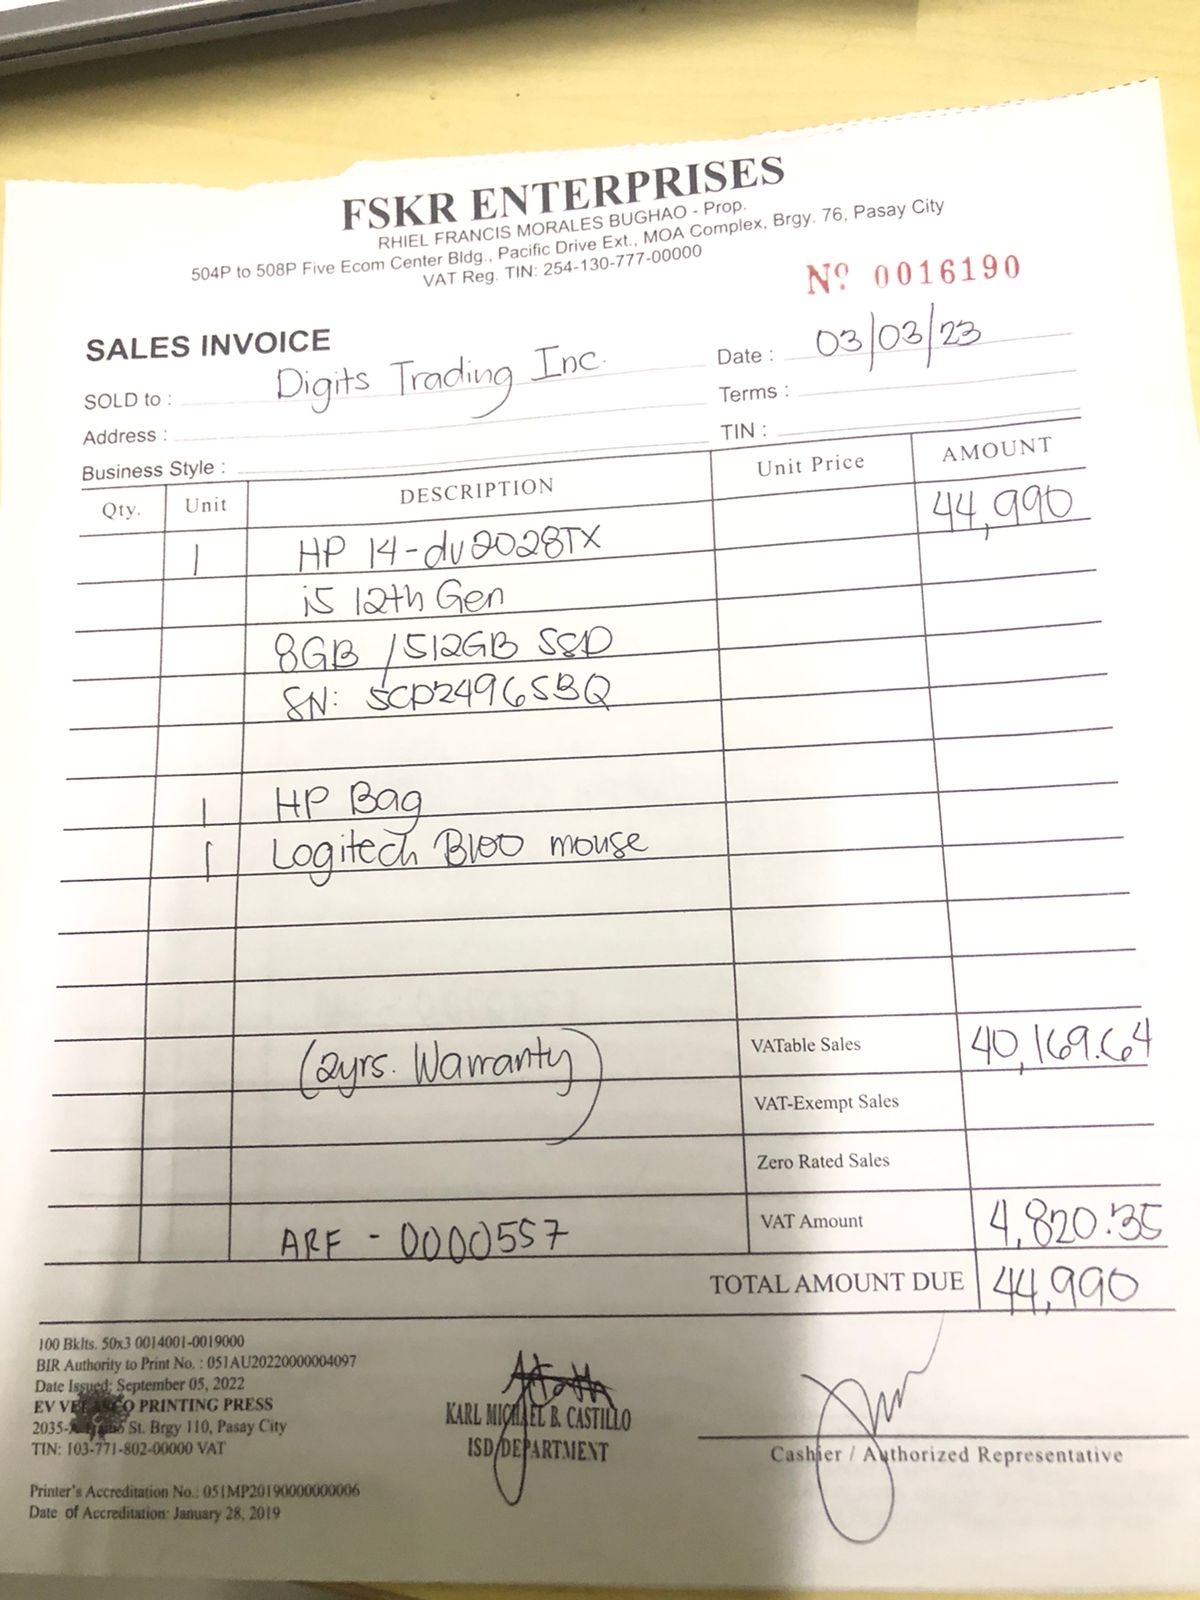 FSKR ENTERPRISES
RHIEL FRANCIS MORALES BUGHAO - Prop.
504P to 508P Five Ecom Center Bldg., Pacific Drive Ext., MOA Complex, Brgy. 76, Pasay City
VAT Reg. TIN: 254-130-777-00000
Nº 0016190
SALES INVOICE
Date : 03/03/23
SOLD to : Digits Trading Inc.
Terms :
Address :
TIN :
Business Style :
Qty. Unit DESCRIPTION Unit Price AMOUNT
1 HP 14-dv2028TX 44,990
i5 12th Gen
8GB /512GB SSD
SN: 5CD24965BQ
1 HP Bag
1 Logitech B100 mouse
(2yrs. Warranty)
VATable Sales 40,169.64
VAT-Exempt Sales
Zero Rated Sales
ARF - 0000557 VAT Amount 4,820.35
TOTAL AMOUNT DUE 44,990
100 Bklts. 50x3 0014001-0019000
BIR Authority to Print No. : 051AU20220000004097
Date Issued: September 05, 2022
EV PRINTING PRESS
St. Brgy 110, Pasay City
TIN: 103-771-802-00000 VAT
Printer's Accreditation No.: 051MP20190000000006
Date of Accreditation: January 28, 2019
KARL MICHAEL B. CASTILLO
ISD/DEPARTMENT
Cashier / Authorized Representative